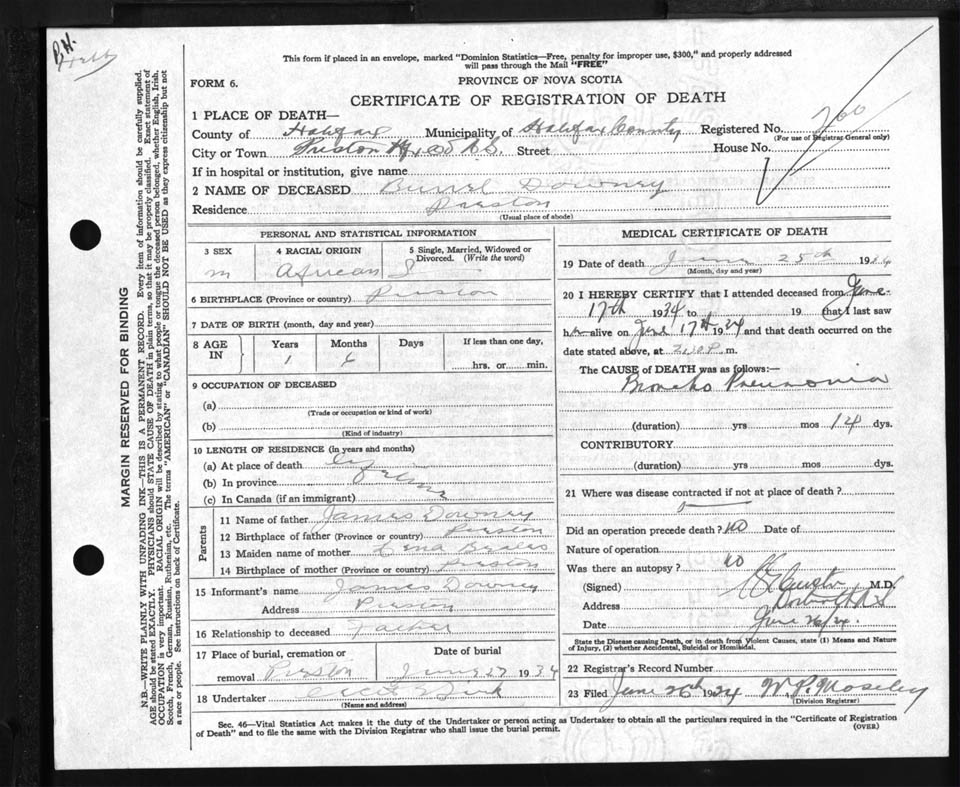 P.H.
Hebb
This form if placed in an envelope, marked "Dominion Statistics—Free, penalty for improper use, $300," and properly addressed
will pass through the Mail "FREE"
FORM 6.
PROVINCE OF NOVA SCOTIA
CERTIFICATE OF REGISTRATION OF DEATH
1 PLACE OF DEATH—
County of Halifax Municipality of Halifax County Registered No. 760
(For use of Registrar-General only)
City or Town Preston N.S. Street House No.
If in hospital or institution, give name
2 NAME OF DECEASED Burrel Downey
Residence Preston
(Usual place of abode)
PERSONAL AND STATISTICAL INFORMATION
3 SEX 4 RACIAL ORIGIN 5 Single, Married, Widowed or
Divorced. (Write the word)
m African S
6 BIRTHPLACE (Province or country) Preston
7 DATE OF BIRTH (month, day and year)
8 AGE IN Years Months Days If less than one day,
1 6 hrs. or min.
9 OCCUPATION OF DECEASED
(a)
(Trade or occupation or kind of work)
(b)
(Kind of industry)
10 LENGTH OF RESIDENCE (in years and months)
(a) At place of death
(b) In province
(c) In Canada (if an immigrant)
Parents
11 Name of father James Downey
12 Birthplace of father (Province or country) Preston
13 Maiden name of mother Lena Beales
14 Birthplace of mother (Province or country) Preston
15 Informant's name James Downey
Address Preston
16 Relationship to deceased Father
17 Place of burial, cremation or Date of burial
removal Preston June 27 1934
18 Undertaker
(Name and address)
MEDICAL CERTIFICATE OF DEATH
19 Date of death June 25th 1934
(Month, day and year)
20 I HEREBY CERTIFY that I attended deceased from June
17th 1934 to 19 that I last saw
h alive on June 17th 1934 and that death occurred on
date stated above, at P. m.
The CAUSE of DEATH was as follows:—
Broncho Pneumonia
(duration) yrs mos 14 dys.
CONTRIBUTORY
(duration) yrs mos dys.
21 Where was disease contracted if not at place of death?
Did an operation precede death? no Date of
Nature of operation
Was there an autopsy? no
(Signed) M.D.
Address
Date June 26/34.
State the Disease causing Death, or in death from Violent Causes, state (1) Means and Nature
of Injury, (2) whether Accidental, Suicidal or Homicidal.
22 Registrar's Record Number
23 Filed June 26th 1934 W. P. Moseley
(Division Registrar)
Sec. 46—Vital Statistics Act makes it the duty of the Undertaker or person acting as Undertaker to obtain all the particulars required in the "Certificate of Registration
of Death" and to file the same with the Division Registrar who shall issue the burial permit. (OVER)
MARGIN RESERVED FOR BINDING
N.B.—WRITE PLAINLY WITH UNFADING INK—THIS IS A PERMANENT RECORD. Every item of information should be carefully supplied.
AGE should be stated EXACTLY. PHYSICIANS should STATE CAUSE OF DEATH in plain terms, so that it may be properly classified. Exact statement of
OCCUPATION is very important. RACIAL ORIGIN will be described by stating to what people or tongue the deceased person belonged, whether English, Irish,
Scotch, French, German, Russian, Ruthenian, etc. The terms "AMERICAN" or "CANADIAN" SHOULD NOT BE USED as they express citizenship but not
a race or people. See instructions on back of Certificate.